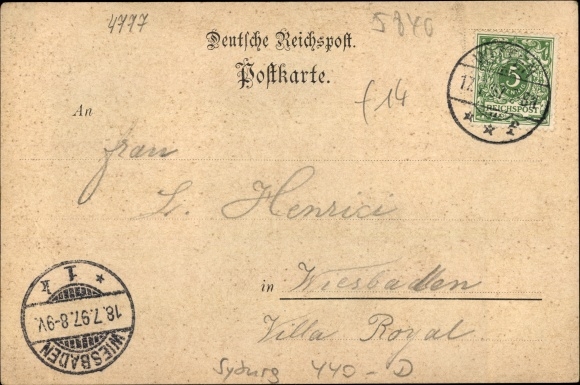 4777
5840
Deutsche Reichspost.
Postkarte.
f 14
5
REICHSPOST
17.
An
Frau
L. Henrici
in Wiesbaden
Villa Royal.
WIESBADEN
18.7.97.8-9V.
* 1 k
Syburg 440 - D